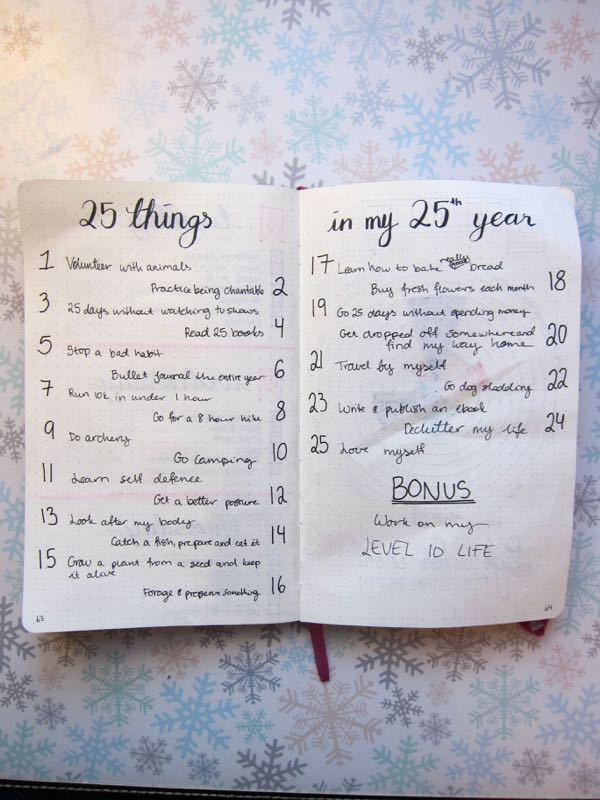 25 things
1 Volunteer with animals
Practice being charitable 2
3 25 days without watching tv shows
Read 25 books 4
5 Stop a bad habit
Bullet Journal the entire year 6
7 Run 10k in under 1 hour
Go for a 8 hour hike 8
9 Do archery
Go Camping 10
11 Learn self defence
Get a better posture 12
13 Look after my body
Catch a fish, prepare and eat it 14
15 Grow a plant from a seed and keep
it alive
Forage & preserve something 16
63
in my 25th year
17 Learn how to bake really bread
Buy fresh flowers each month 18
19 Go 25 days without spending money
Get dropped off somewhere and 20
find my way home
21 Travel by myself
Go dog sledding 22
23 Write & publish an ebook
Declutter my life 24
25 Love myself
BONUS
Work on my
LEVEL 10 LIFE
64